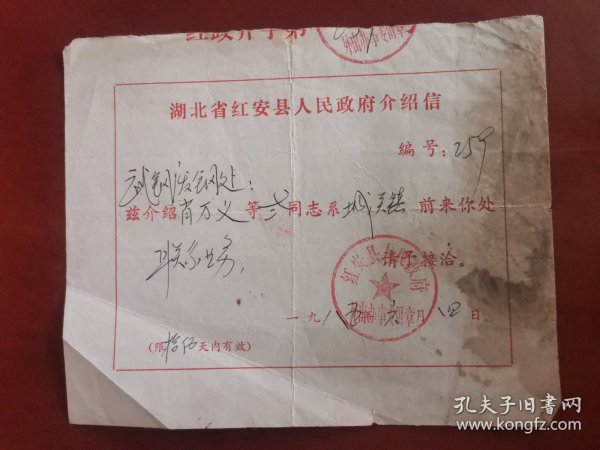 红政介字第
湖北省红安县人民政府介绍信
编号:259
武钢废钢处:
兹介绍肖万义等弍同志系城关镇前来你处
联系业务,
请予接洽。
一九八五年六月八四日
(限拾伍天内有效)
红安县人民政府
孔夫子旧书网
www.kongfz.com